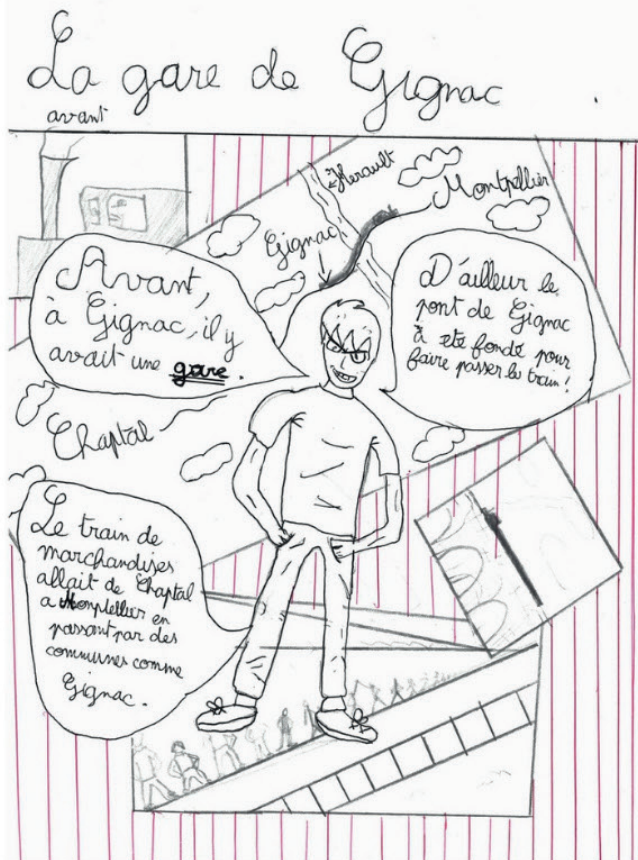 La gare de Gignac
avant
Hérault
Montpellier
Gignac
Avant,
à Gignac, il y
avait une gare.
D'ailleur le
pont de Gignac
à ete fondé pour
faire passer le train!
Chaptal
Le train de
marchandises
allait de Chaptal
a Monptellier en
passant par des
communes comme
Gignac.